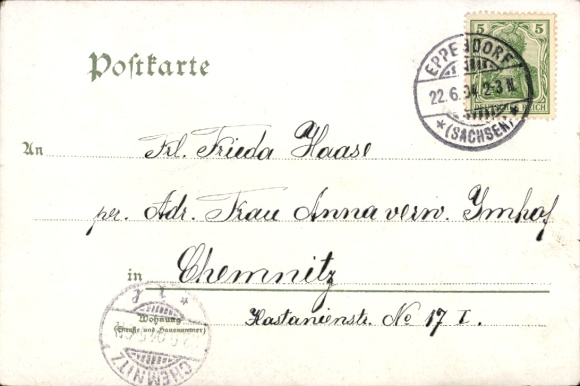 Postkarte
5 5
EPPENDORF
22.6.04.2-3 N.
DEUTSCHES REICH
*(SACHSEN)*
An Frl. Frieda Haase
per. Adr. Frau Anna verw. Ymhof
in Chemnitz
Wohnung
(Straße und Hausnummer)
Kastanienstr. No 17 I.
CHEMNITZ